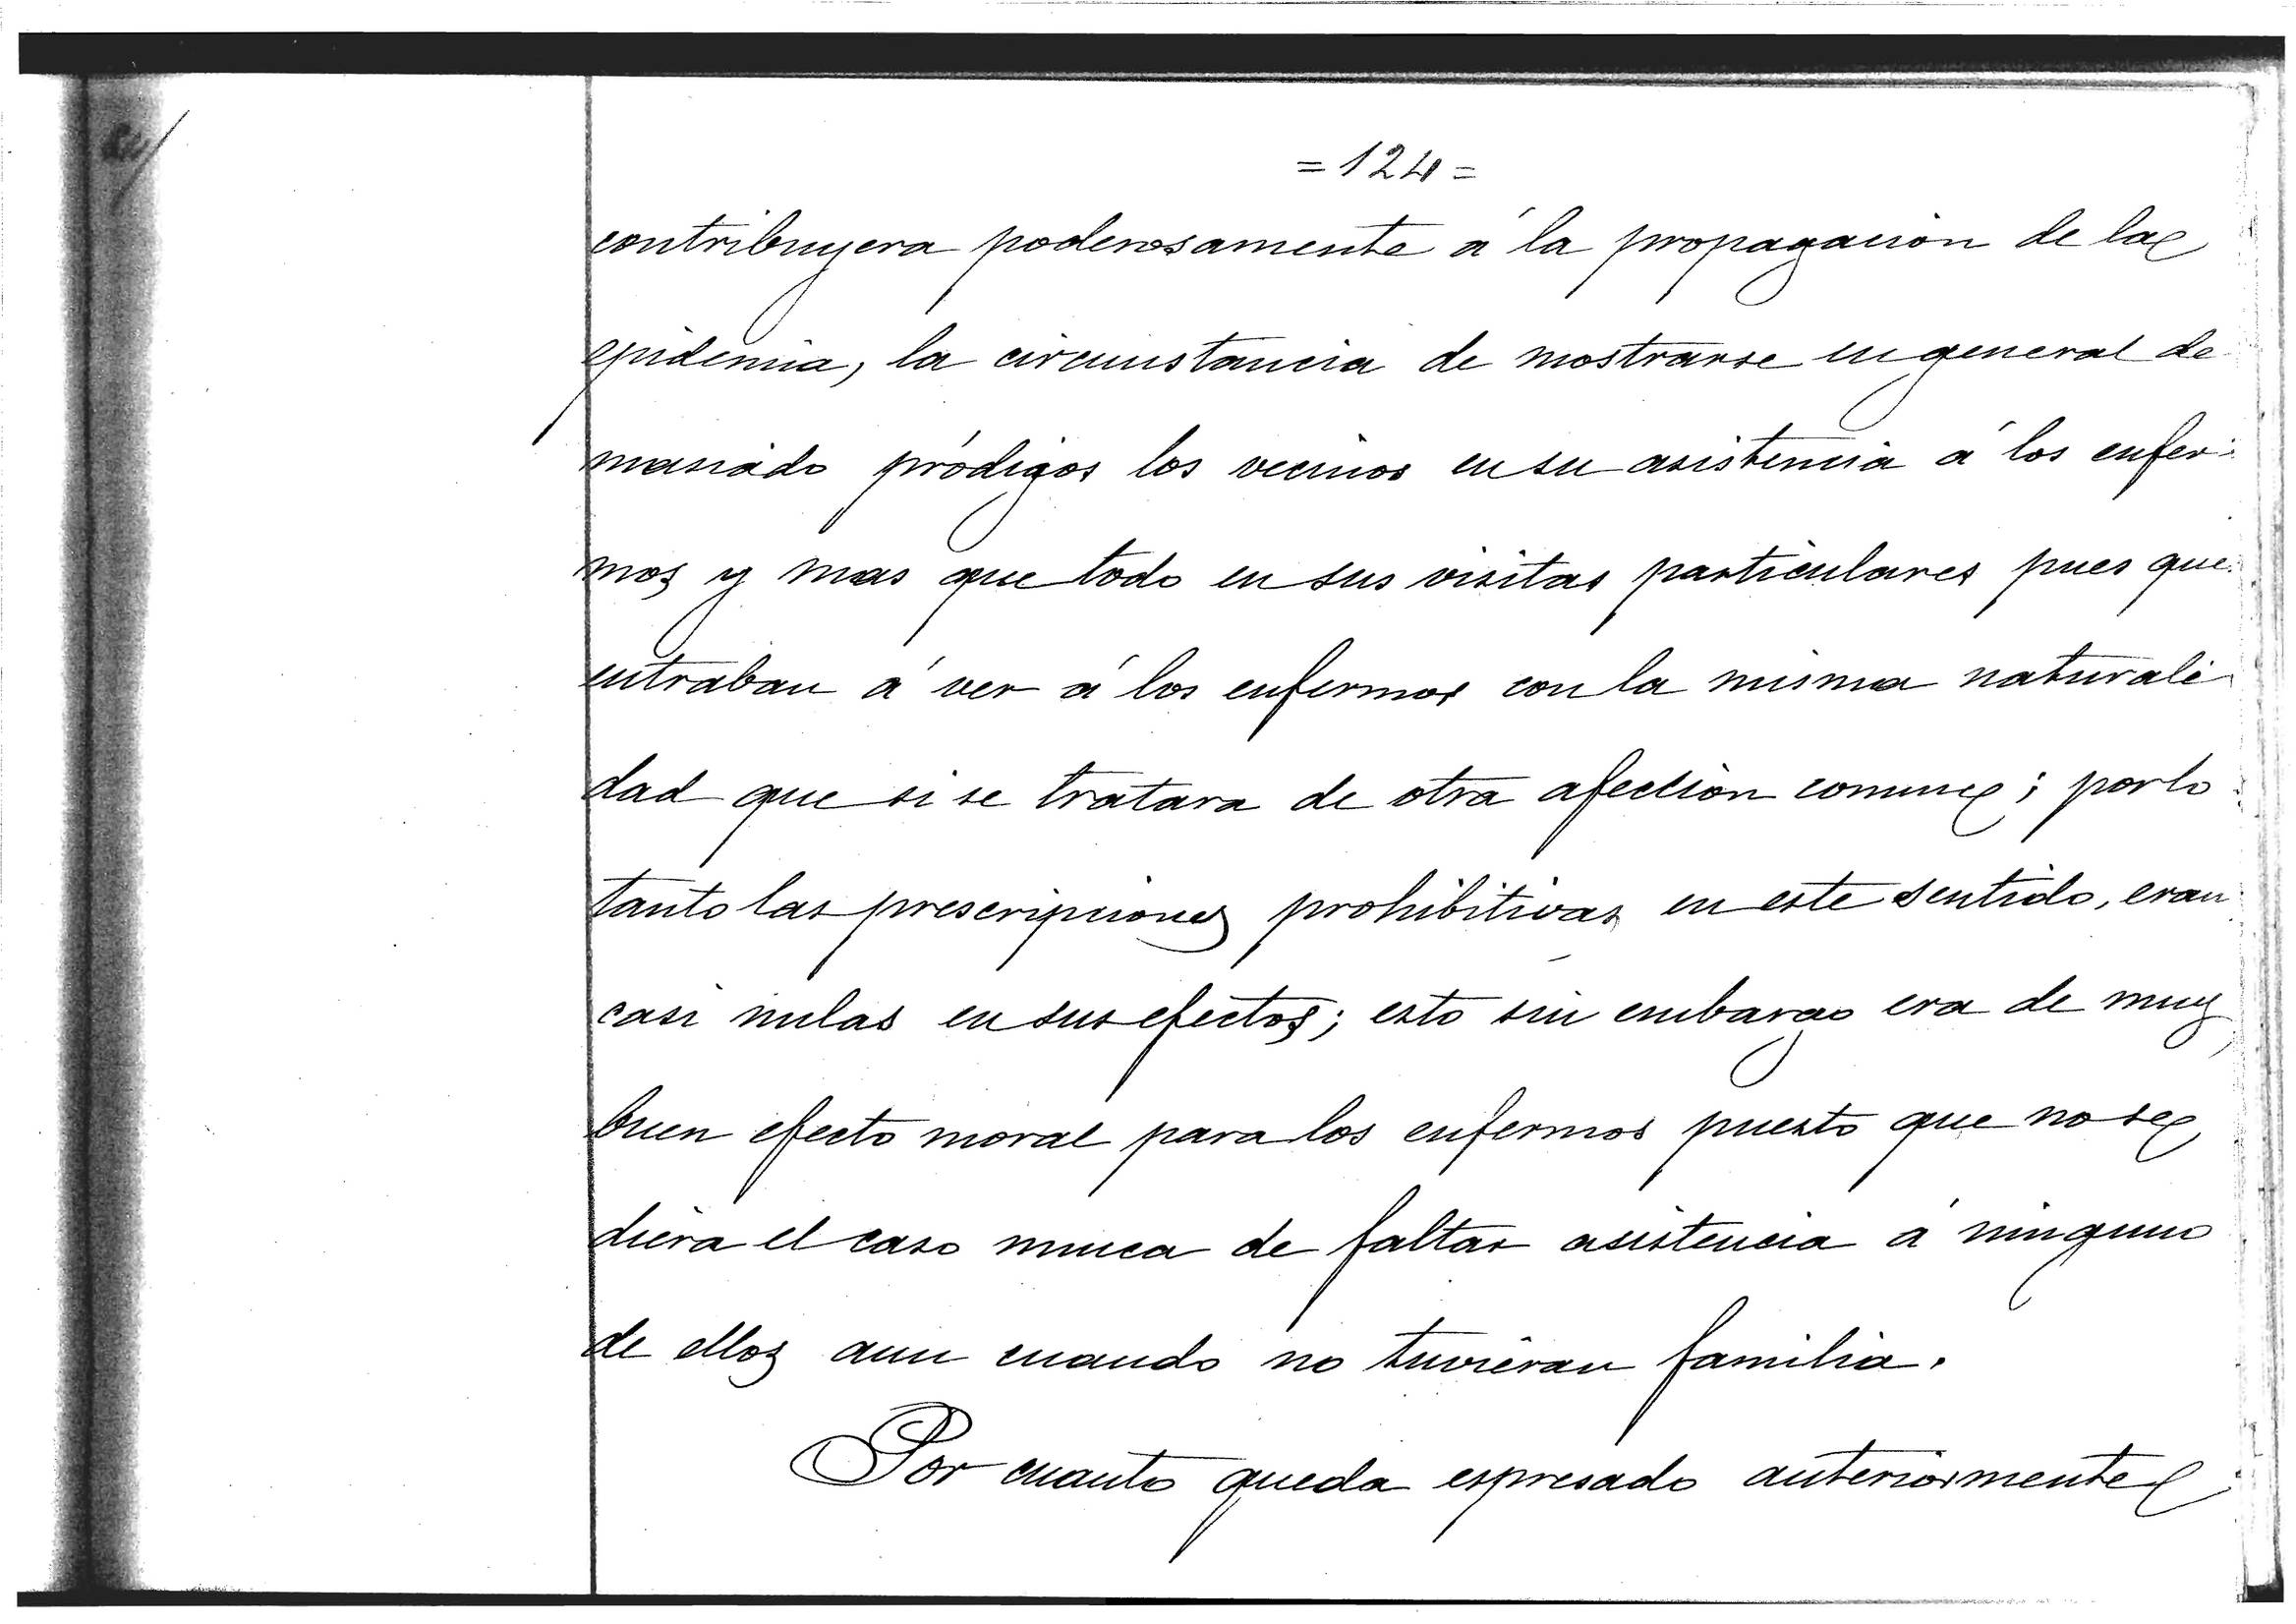 = 124 =
contribuyera poderosamente á la propagación de la
epidemia, la circunstancia de mostrarse en general de
masiado pródigos los vecinos en su asistencia á los enfer-
mos y mas que todo en sus visitas particulares pues que
entraban á ver á los enfermos con la misma naturali
dad que si se tratara de otra afección comun; por lo
tanto las prescripciones prohibitivas en este sentido, eran
casi nulas en sus efectos; esto sin embargo era de muy
buen efecto moral para los enfermos puesto que no se
diera el caso nunca de faltar asistencia á ninguno
de ellos aun cuando no tuvieran familia.
Por cuanto queda espresado anteriormente